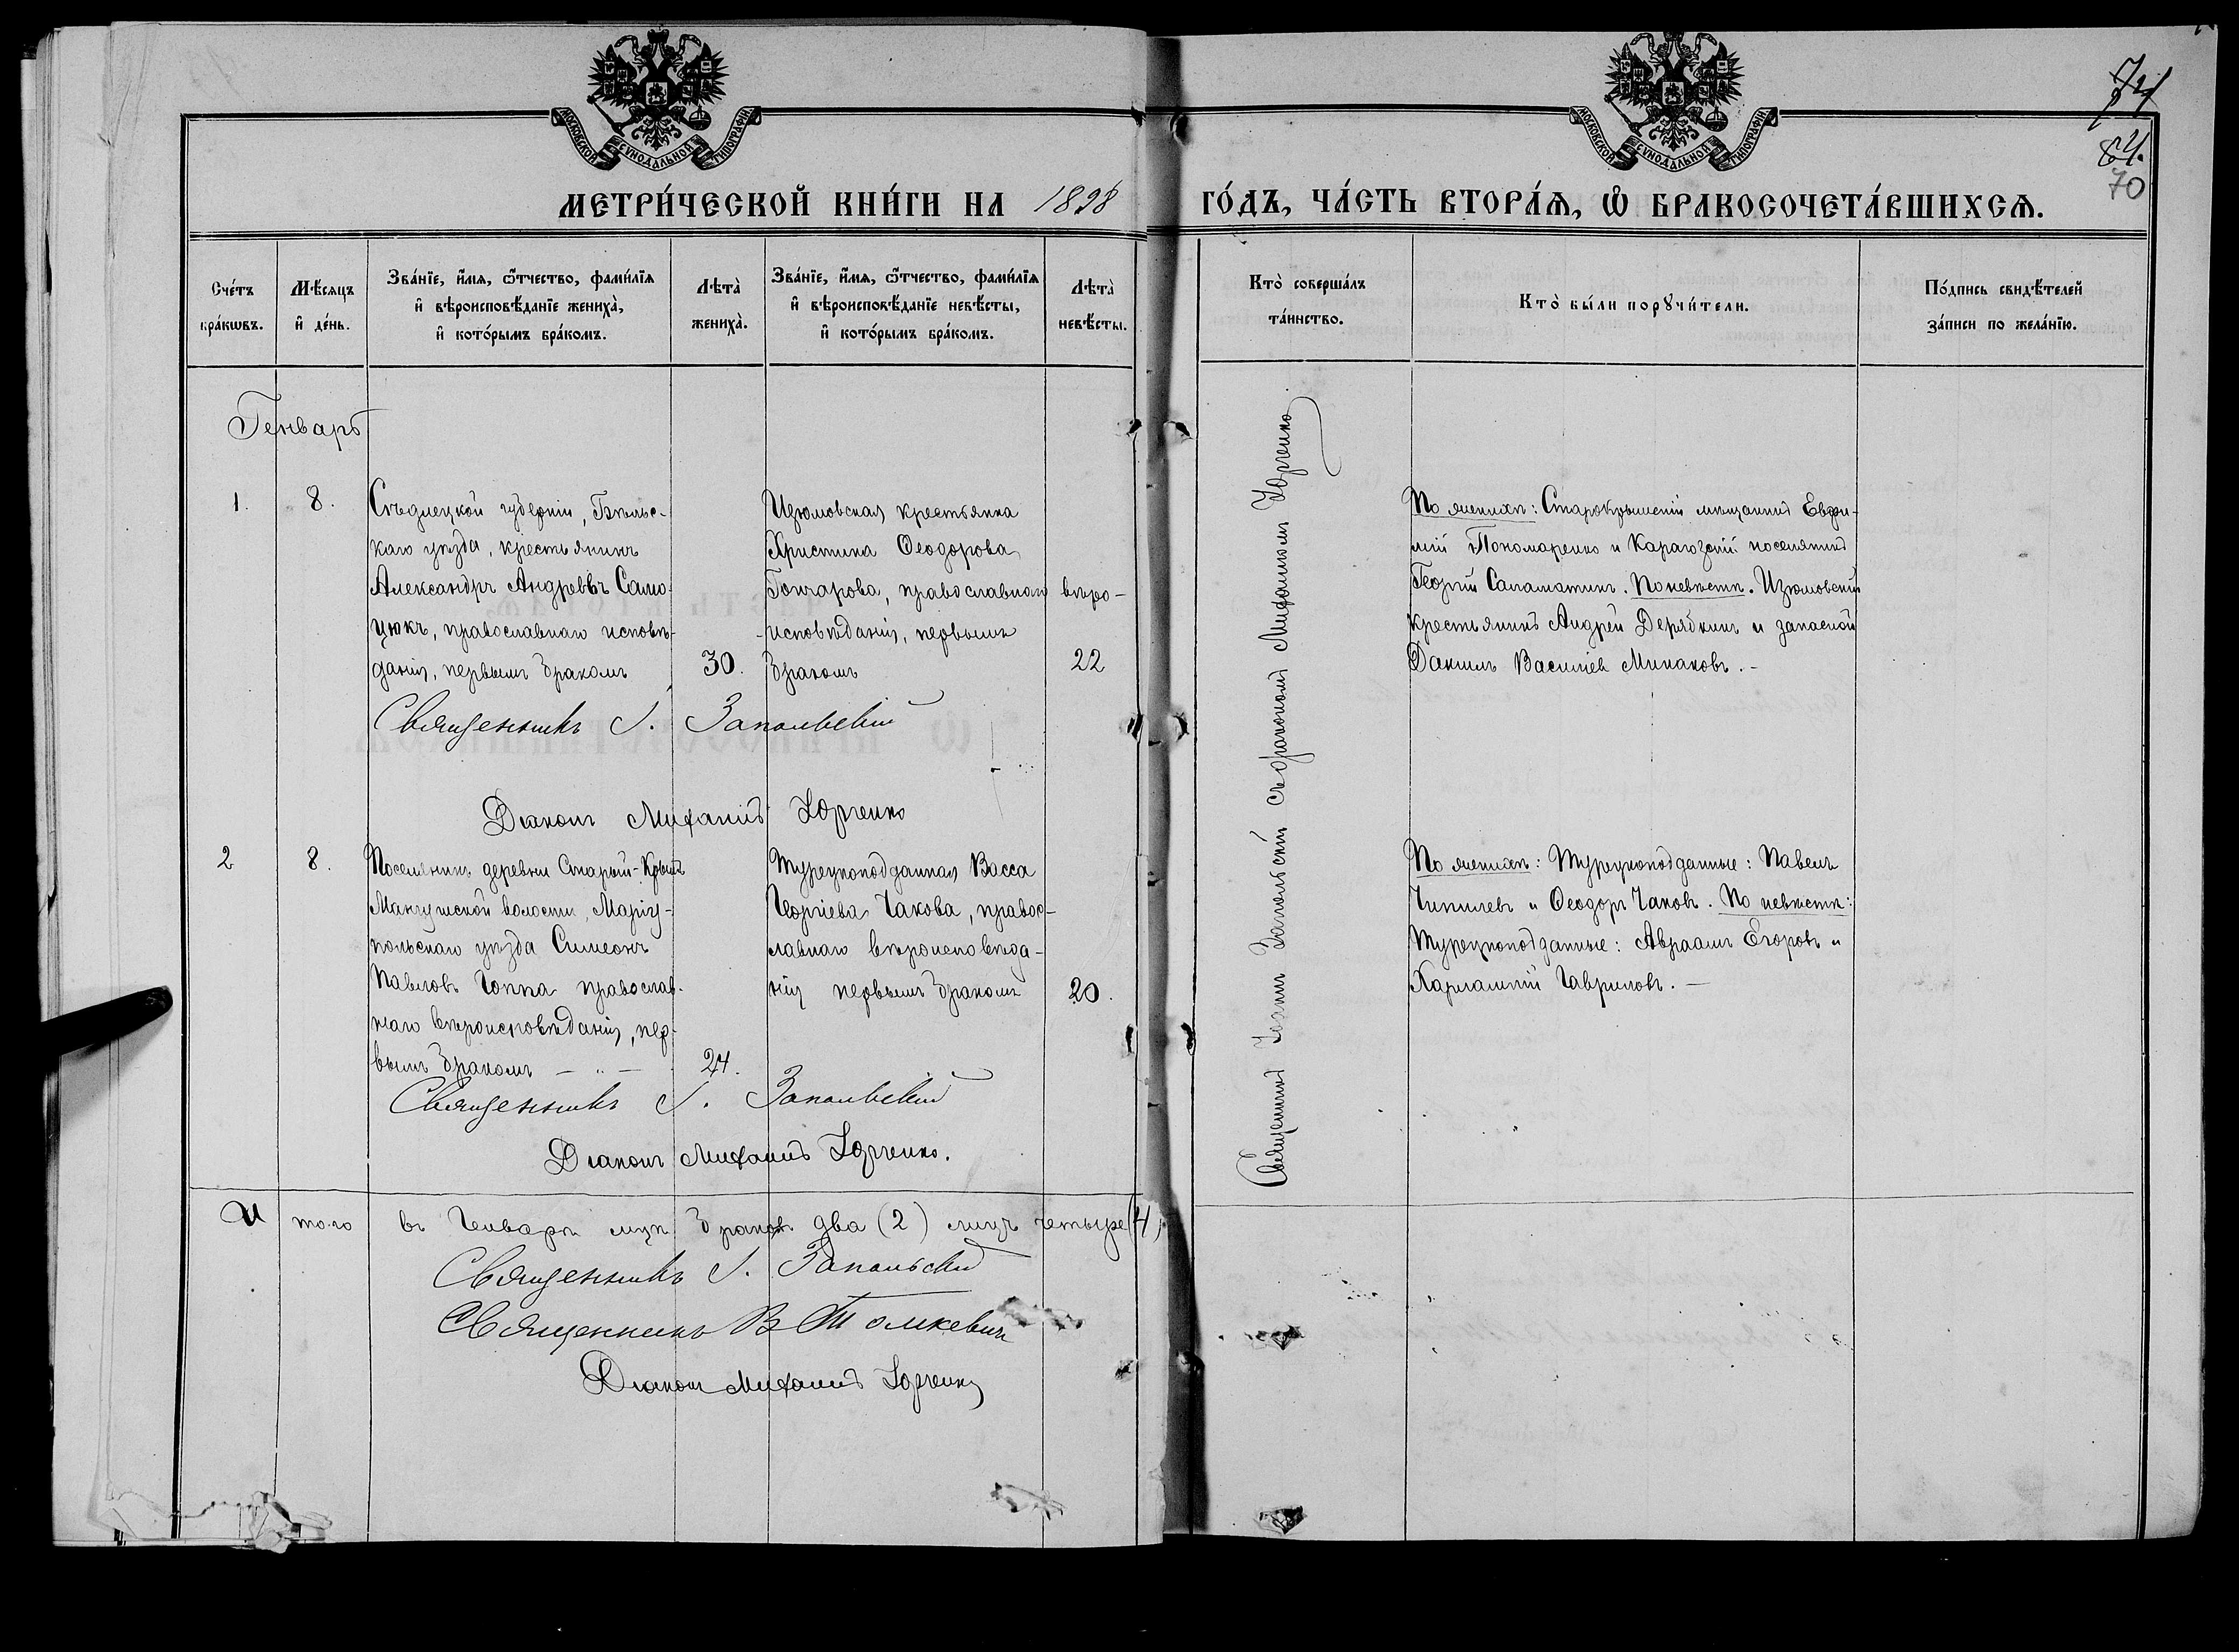 МОСКОВСКОЙ СУНОДАЛЬНОЙ ТИПОГРАФІИ
МОСКОВСКОЙ СУНОДАЛЬНОЙ ТИПОГРАФІИ
74
64.
70
МЕТРИ́ЧЕСКОЙ КНИ́ГИ НА 1898 ГО́ДЪ, ЧА́СТЬ ВТОРА́Ѧ, Ѡ БРАКОСОЧЕТА́ВШИХСѦ.
Сче́тъ
бра́кѡвъ.
Мѣ́сяцъ
и҆ де́нь.
Зва́нїе, и҆́мя, ѻ҆́тчество, фами́лїя
и҆ вѣроисповѣ́данїе жениха̀,
и҆ кото́рымъ бра́комъ.
Лѣта̀
жениха̀.
Зва́нїе, и҆́мя, ѻ҆́тчество, фами́лїя
и҆ вѣроисповѣ́данїе невѣ́сты,
и҆ кото́рымъ бра́комъ.
Лѣта̀
невѣ́сты.
Кто̀ соверша́лъ
та́инство.
Кто̀ бы́ли порꙋчи́тели.
По́дпись свидѣ́телей
за́писи по жела́нїю.
Генварь
1.
8.
Сѣдлецкой губерніи, Бѣльс-
каго уѣзда, крестьянинъ
Александръ Андреевъ Само-
цюкъ, православнаго исповѣ-
данія, первымъ бракомъ
30.
Изюмовская крестьянка
Христина Ѳеодорова
Гончарова, православнаго вѣро-
исповѣданія, первымъ
бракомъ
22
Священникъ І. Запольскій
Діаконъ Михаилъ Юрченко
По женихѣ: Старокрымскій мѣщанинъ Евфи-
мій Пономаренко и Карагозскій поселянинъ
Георгій Саламатинъ. По невѣстѣ. Изюмовскій
крестьянинъ Андрей Дерябкинъ и запасной
Даніилъ Василіев Минаковъ. -
Священникъ Іоаннъ Запольскій съ діакономъ Михаиломъ Юрченко.
2
8.
Поселянинъ деревни Старый-Крымъ
Мангушской волости, Маріу-
польскаго уѣзда Симеонъ
Павловъ Чоппа православ-
наго вѣроисповѣданія, пер-
вымъ бракомъ — „ —
24.
Турецкоподданная Васса
Георгіева Чакова, правос-
лавнаго вѣроисповѣда-
нія первымъ бракомъ
20.
Священникъ І. Запольскій
Діаконъ Михаилъ Юрченко.
По женихѣ: Турецкоподданные: Павелъ
Чипилевъ и Ѳеодоръ Чаковъ. По невѣстѣ:
Турецкоподданные: Авраамъ Егоровъ и
Харлампій Гавриловъ. —
Итого въ Генварѣ мцѣ браковъ два (2) лицъ четыре (4)
Священникъ І. Запольскій
Священникъ В Томкевичъ
Діаконъ Михаилъ Юрченко